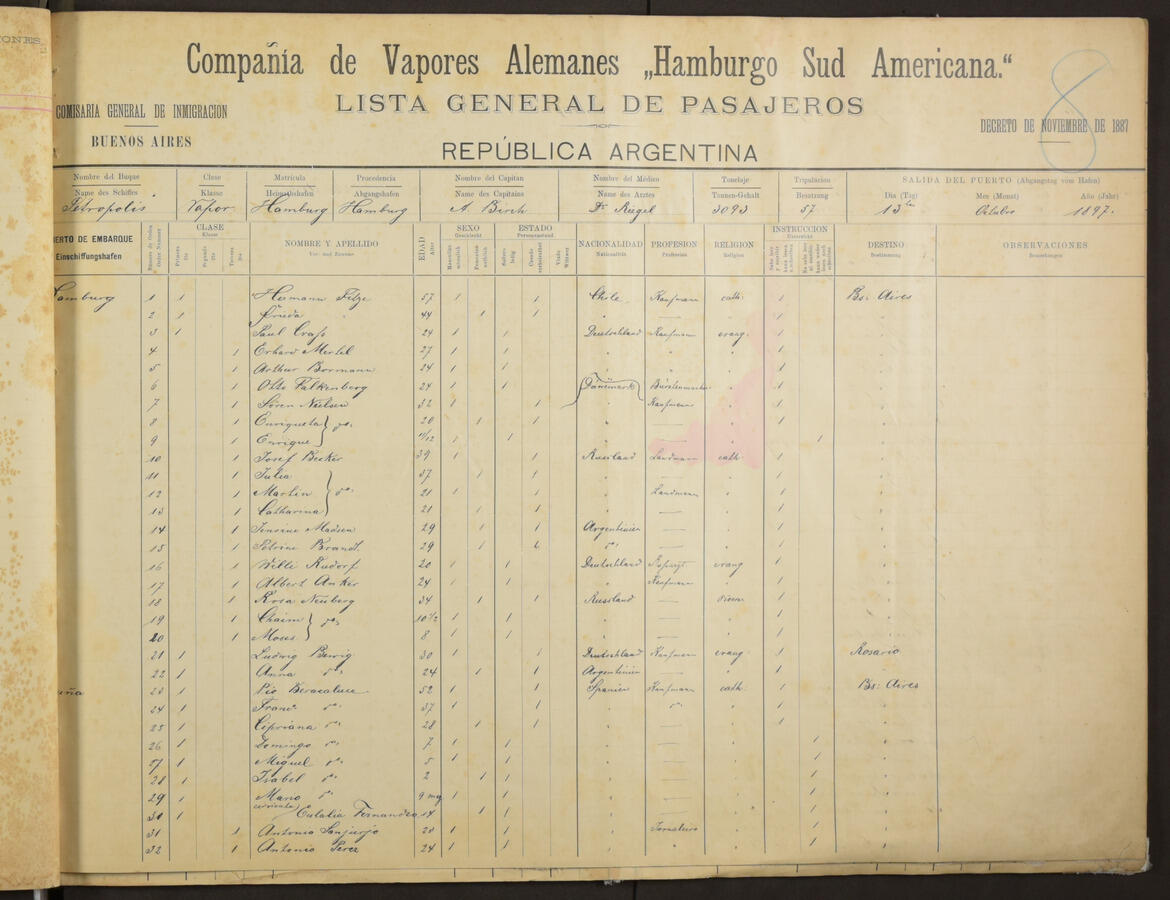 IONES
Compañía de Vapores Alemanes „Hamburgo Sud Americana.“
COMISARIA GENERAL DE INMIGRACION
LISTA GENERAL DE PASAJEROS
8
DECRETO DE NOVIEMBRE DE 1887
BUENOS AIRES
REPÚBLICA ARGENTINA
Nombre del Buque Clase Matrícula Procedencia Nombre del Capitan Nombre del Médico Tonelaje Tripulacion SALIDA DEL PUERTO (Abgangstag vom Hafen)
Name des Schiffes Klasse Heimathshafen Abgangshafen Name des Capitains Name des Arztes Tonnen-Gehalt Besatzung Dia (Tag) Mes (Monat) Año (Jahr)
Petropolis Vapor Hamburg Hamburg A. Birch Dr Riegel 3093 57 13 Octubre 1897.
ERTO DE EMBARQUE CLASE NOMBRE Y APELLIDO EDAD SEXO ESTADO NACIONALIDAD PROFESION RELIGION INSTRUCCION DESTINO OBSERVACIONES
Einschiffungshafen Klasse Vor- und Zuname Alter Geschlecht Personenstand Nationalität Profession Religion Unterricht Bestimmung Bemerkungen
amburg 1 1 Hermann 57 1 1 Chile Kaufmann cath. 1 Bs: Aires
2 1 Frieda 44 1 1 " — " 1 "
3 1 Paul 24 1 1 Deutschland Kaufmann evang. 1 "
4 1 Erhard Mertel 27 1 1 " " " 1 "
5 1 Arthur Bormann 24 1 1 " " " 1 "
6 1 Otto Falkenberg 24 1 1 Dänemark 1 "
7 1 Sören Nielsen 32 1 1 Kaufmann " 1 "
8 1 Enriqueta do 20 1 1 " — " 1 "
9 1 Enrique 11/12 1 1 " — " 1 "
10 1 Josef Becker 39 1 1 Russland Landmann cath. 1 "
11 1 Julia 37 1 1 " — " 1 "
12 1 Martin do 21 1 1 " Landmann " 1 "
13 1 Catharina 21 1 1 " — " 1 "
14 1 Madsen 29 1 1 Argentinien — " 1 "
15 1 Petrine Brandt 29 1 do — " 1 "
16 1 Willi Rudorf 20 1 1 Deutschland evang 1 "
17 1 Albert Anker 24 1 1 " Kaufmann " 1 "
18 1 Rosa Neuberg 34 1 1 Russland — 1 "
19 1 Chaim do 10 1/2 1 1 " — " 1 "
20 1 Moses 8 1 1 " — " 1 "
21 1 Ludwig 30 1 1 Deutschland Kaufmann evang. 1 Rosario
22 1 Anna " 24 1 1 Argentinien — " 1 "
uña 23 1 Pio 52 1 1 Spanien Kaufmann cath. 1 Bs: Aires
24 1 do 37 1 1 " do " 1 "
25 1 Cipriana do 28 1 1 " — " 1 "
26 1 Domingo do 7 1 1 " — " 1 "
27 1 Miguel do 5 1 1 " — " 1 "
28 1 Isabel do 2 1 1 " — " 1 "
29 1 Mario do 9 1 1 " — " 1 "
30 1 Eulalia Fernandez 14 1 1 " — " 1 "
31 1 Antonio Sanjurjo 20 1 1 " Jornalero " 1 "
32 1 Antonio Perez 24 1 1 " " " 1 "